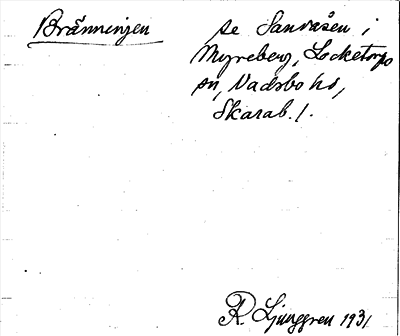 Bränningen
se Sandåsen i
Myreberg, Locketorps
sn, Vadsbo hd,
Skarab. l.
R. Ljunggren 1931